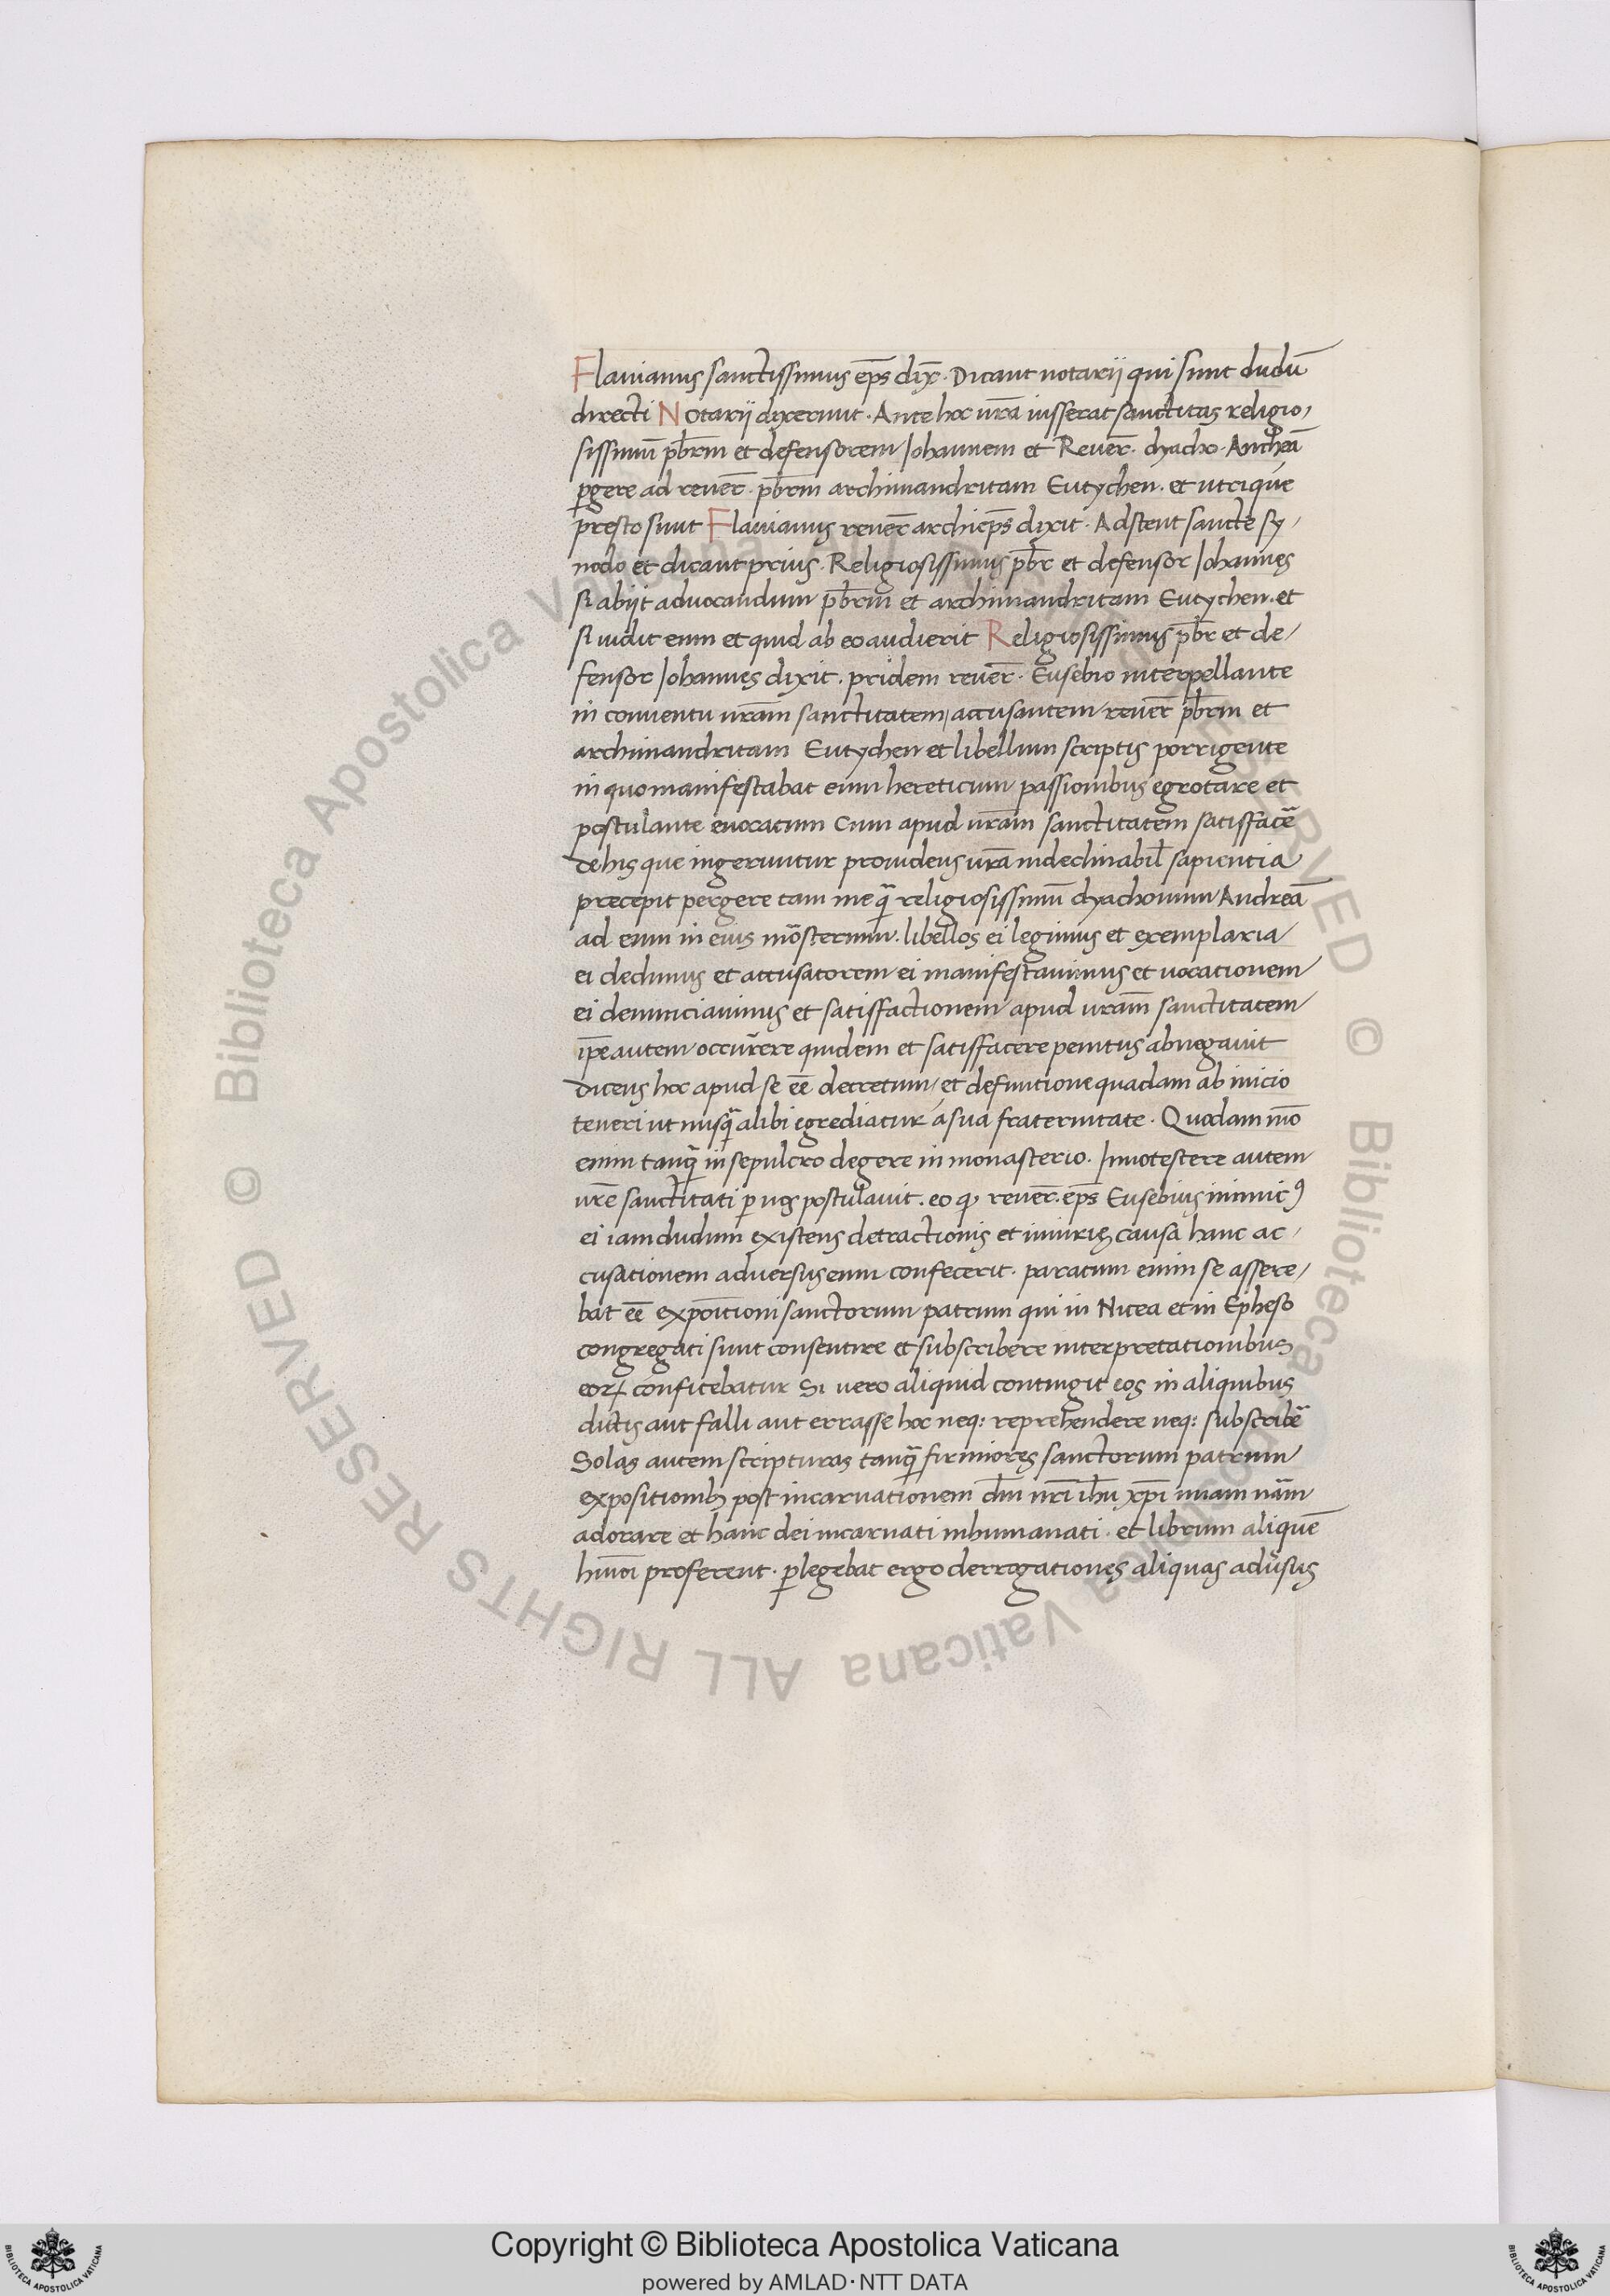 Flauianus sanctissimus ep̄s dix̄. Dicant notarij qui sunt dudū
directi Notarij dixerunt. Ante hoc ur̄a iusserat sanctitas religio,
sissimū pb̄rm et defensorem Iohannem et Reuer̄. dyacho. Andreā
ꝑgere ad reuer̄. pb̄rm archimandritam Eutychen. et utrique
presto sunt Flauianus reuer̄ archiep̄s dixit. Adstent sancte sy,
nodo et dicant prius. Religiosissimus pb̄r et defensor Iohannes
si abijt aduocandum pb̄rm et archimandritam Eutychen. et
si uidit eum et quid ab eo audierit Religiosissimus pb̄r et de,
fensor Iohannes dixit. pridem reuer̄. Eusebio interpellante
in conuentu ur̄am sanctitatem, accusantem reuer̄ pb̄rm et
archimandritam Eutychen et libellum scriptis porrigente
in quo manifestabat eum hereticum passionibus egrotare et
postulante euocatum Cum apud ur̄am sanctitatem satisfacē
de his que ingeruntur prouidens ur̄a indeclinabil̄ sapientia
precepit pergere tam me q̄ religiosissimū dyachonum Andreā
ad eum in eius mōsterium. libellos ei legimus et exemplaria
ei dedimus et accusatorem ei manifestauimus et uocationem
ei denunciauimus et satisfactionem apud ur̄am sanctitatem
ip̄e autem occurrere quidem et satisfacere penitus abnegauit
dicens hoc apud se eē decretum, et definitione quadam ab inicio
teneri ut nusq̄ alibi egrediatur á sua fraternitate. Quodam mō
enim tanq̄ in sepulcro degere in monasterio. Innotescere autem
ur̄e sanctitati ꝑ nos postulauit. eo ꝙ reuer̄. ep̄s Eusebius inimicꝰ
ei iamdudum existens detractionis et iniurię causa hanc ac,
cusationem aduersus eum confecerit. paratum enim se assere,
bat eē expoitioni sanctorum patrum qui in Nicea et in Epheso
congregati sunt consentire et subscribere interpretationibus
eoꝝ confitebatur Si uero aliquid contingit eos in aliquibus
dictis aut falli aut errasse hoc neq: reprehendere neq: subscribē
Solas autem scripturas tanq̄ firmiores sanctorum patrum
expositionibꝫ post incarnationem dn̄i nr̄i ih̄u xp̄i unam nām
adorare et hanc dei incarnati inhumanati. et librum aliquē
hmōi proferent. ꝑlegebat ergo derrogationes aliquas adūsus
Copyright © Biblioteca Apostolica Vaticana
powered by AMLAD・NTT DATA
© Biblioteca Apostolica Vaticana ALL RIGHTS RESERVED
© Biblioteca Apostolica Vaticana ALL RIGHTS RESERVED
BIBLIOTECA APOSTOLICA VATICANA
BIBLIOTECA APOSTOLICA VATICANA